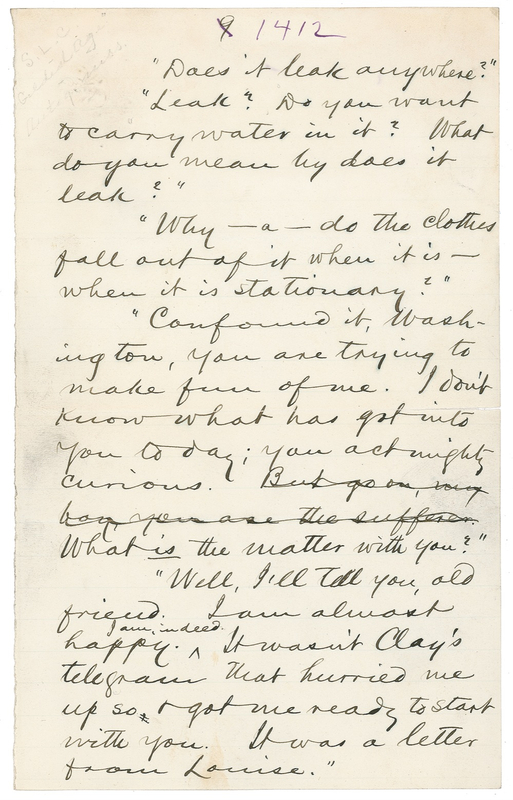 9 1412
S. L. C.
"Does it leak anywhere?"
"Leak? Do you want
to carry water in it? What
do you mean by does it
leak?"
"Why — a — do the clothes
fall out of it when it is —
when it is stationary?"
"Confound it, Wash-
ington, you are trying to
make fun of me. I don't
know what has got into
you to day; you act mighty
curious. But go on, my
boy, you are the sufferer.
What is the matter with you?"
"Well, I'll tell you, old
friend. I am almost
I am, indeed.
happy. ^ It wasn't Clay's
telegram that hurried me
up so, & got me ready to start
with you. It was a letter
from Louise."